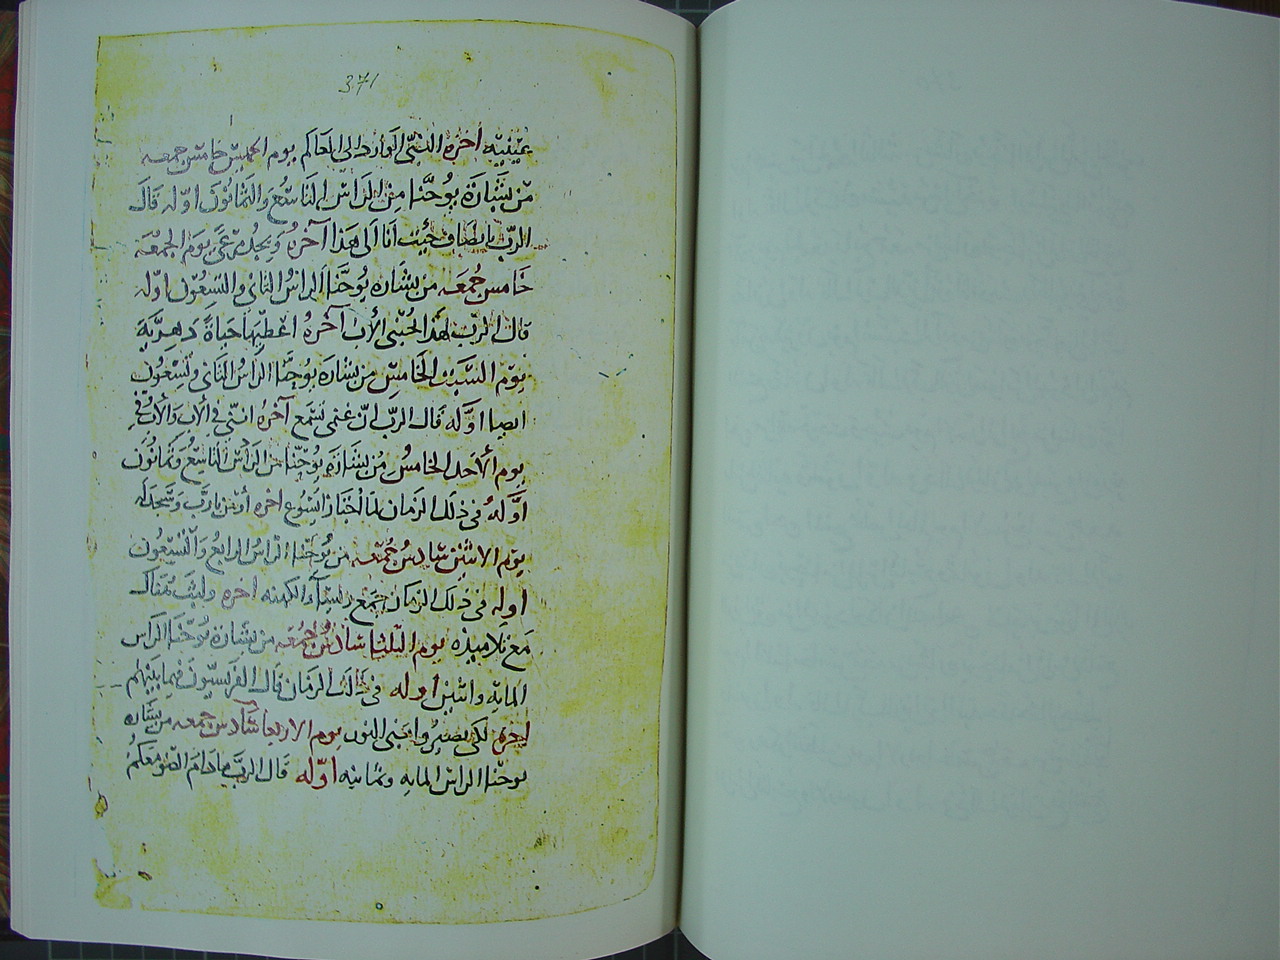 371
عينيه اخره النبي الوارد الى العالم يوم الخميس خامس جمعه
من بشارة يوحنا من الراس التاسع والثمانون اوله قال
الرب انطلق حيث انا الى هذا آخره يوم الجمعة
خامس جمعه من بشاره يوحنا الراس الثاني والتسعون اوله
قال الرب لهذا الخبز الان آخره اعطيها حياة دهرية
يوم السبت الخامس من بشاره يوحنا الراس الثاني وتسعون
ايضا اوله قال الرب ان غنمي تسمع آخره انني في الاب والاب في
يوم الأحد الخامس من بشارة يوحنا من الراس التاسع وثمانون
اوله في ذلك الزمان لما اجتاز ايسوع اخره أومن يا رب وسجد له
يوم الاثنين سادس جمعه من يوحنا الراس الرابع والتسعون
اوله في ذلك الزمان جمع رؤسآء الكهنه اخره ولبث هناك
مع تلاميذه يوم الثلثا سادس جمعه من بشارة يوحنا الراس
المايه واثنين اوله في ذلك الزمان قال الفريسيون فيما بينهم
اخره لكي يصيروا بني النور يوم الاربعا سادس جمعه من بشاره
يوحنا الراس المايه وثمانيه اوله قال الرب ما دام الضو معكم